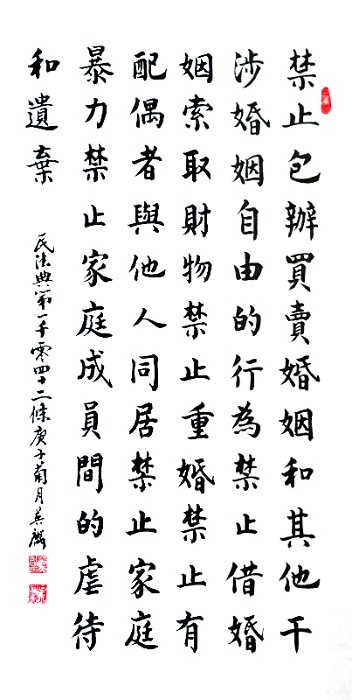 禁止包辦買賣婚姻和其他干
涉婚姻自由的行為禁止借婚
姻索取財物禁止重婚禁止有
配偶者與他人同居禁止家庭
暴力禁止家庭成員間的虐待
和遺棄
民法典第一千零四十二條庚子菊月